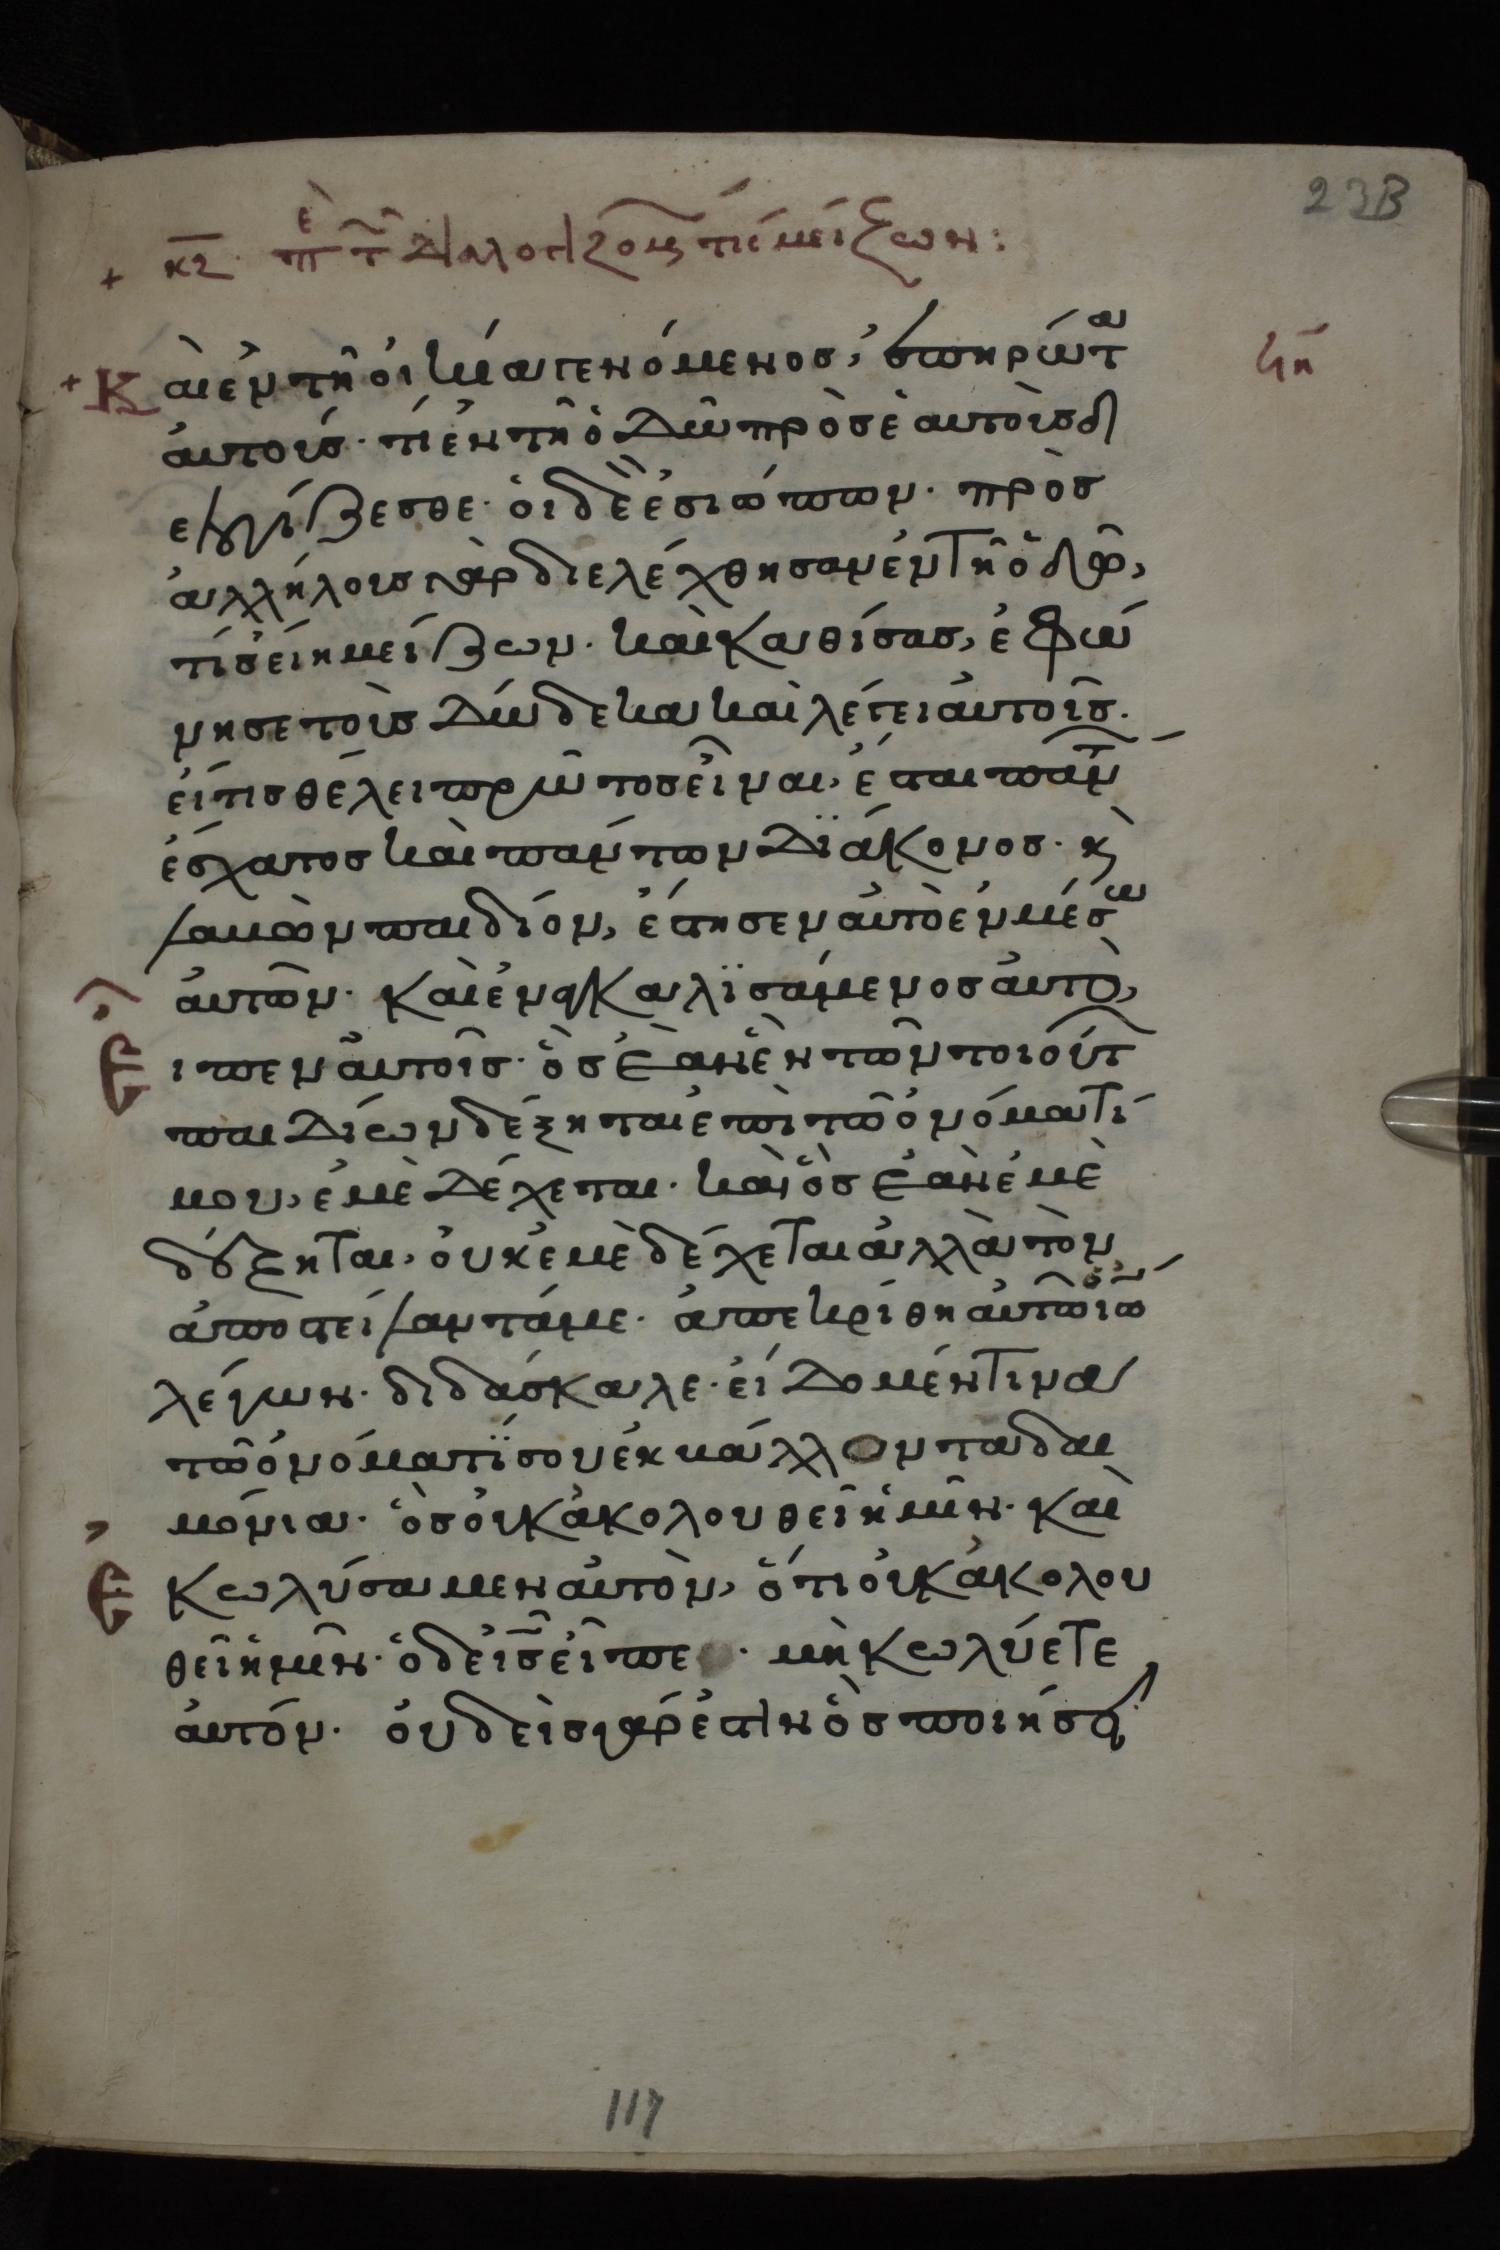 23B
+ κζ· ἐπ τ διαλογιζομ τίς μείζων:
+ Καὶ ἐν τῆ οἰκία γενόμενος, ἐπηρώτα
αὐτούς· τί ἐν τῆ ὁδῶ πρὸς ἑαυτοὺς δι
ελογίζεσθε· οἱ δὲ ἐσιώπων· πρὸς
ἀλλήλους γὰρ διελέχθησαν ἐν τῆ ὁδῶ,
τίς εἴη μείζων· καὶ καθίσας, ἐφώ
νησε τοὺς δώδεκα καὶ λέγει αὐτοῖς·
εἴ τις θέλει πρῶτος εἶναι, ἔσται πάντ
ἔσχατος καὶ πάντων διάκονος· κ
λαβὼν παιδίον, ἔστησεν αὐτὸ ἐν μέσω
αὐτῶν· καὶ ἐναγκαλισάμενος αὐτὸ,
εἶπεν αὐτοῖς· ὃς ἐὰν ἓν τῶν τοιούτ
παιδίων δέξηται ἐπὶ τῶ ὀνόματί
μου, ἐμὲ δέχεται· καὶ ὃς ἐὰν ἐμὲ
δέξηται, οὐκ ἐμὲ δέχεται ἀλλὰ τὸν
ἀποστείλαντά με· ἀπεκρίθη αὐτῶ ὁ ἰω
λέγων· διδάσκαλε· εἴδομέν τινα
τῶ ὀνόματί σου ἐκβάλλοντα δαι
μόνια· ὃς οὐκ ἀκολουθεῖ ἡμῖν· καὶ
ἐκωλύσαμεν αὐτὸν, ὅτι οὐκ ἀκολου
θεῖ ἡμῖν· ὁ δὲ ις εἶπε · μὴ κωλύετε
αὐτόν· οὐδεὶς γάρ ἐστιν ὃς ποιήσει
117